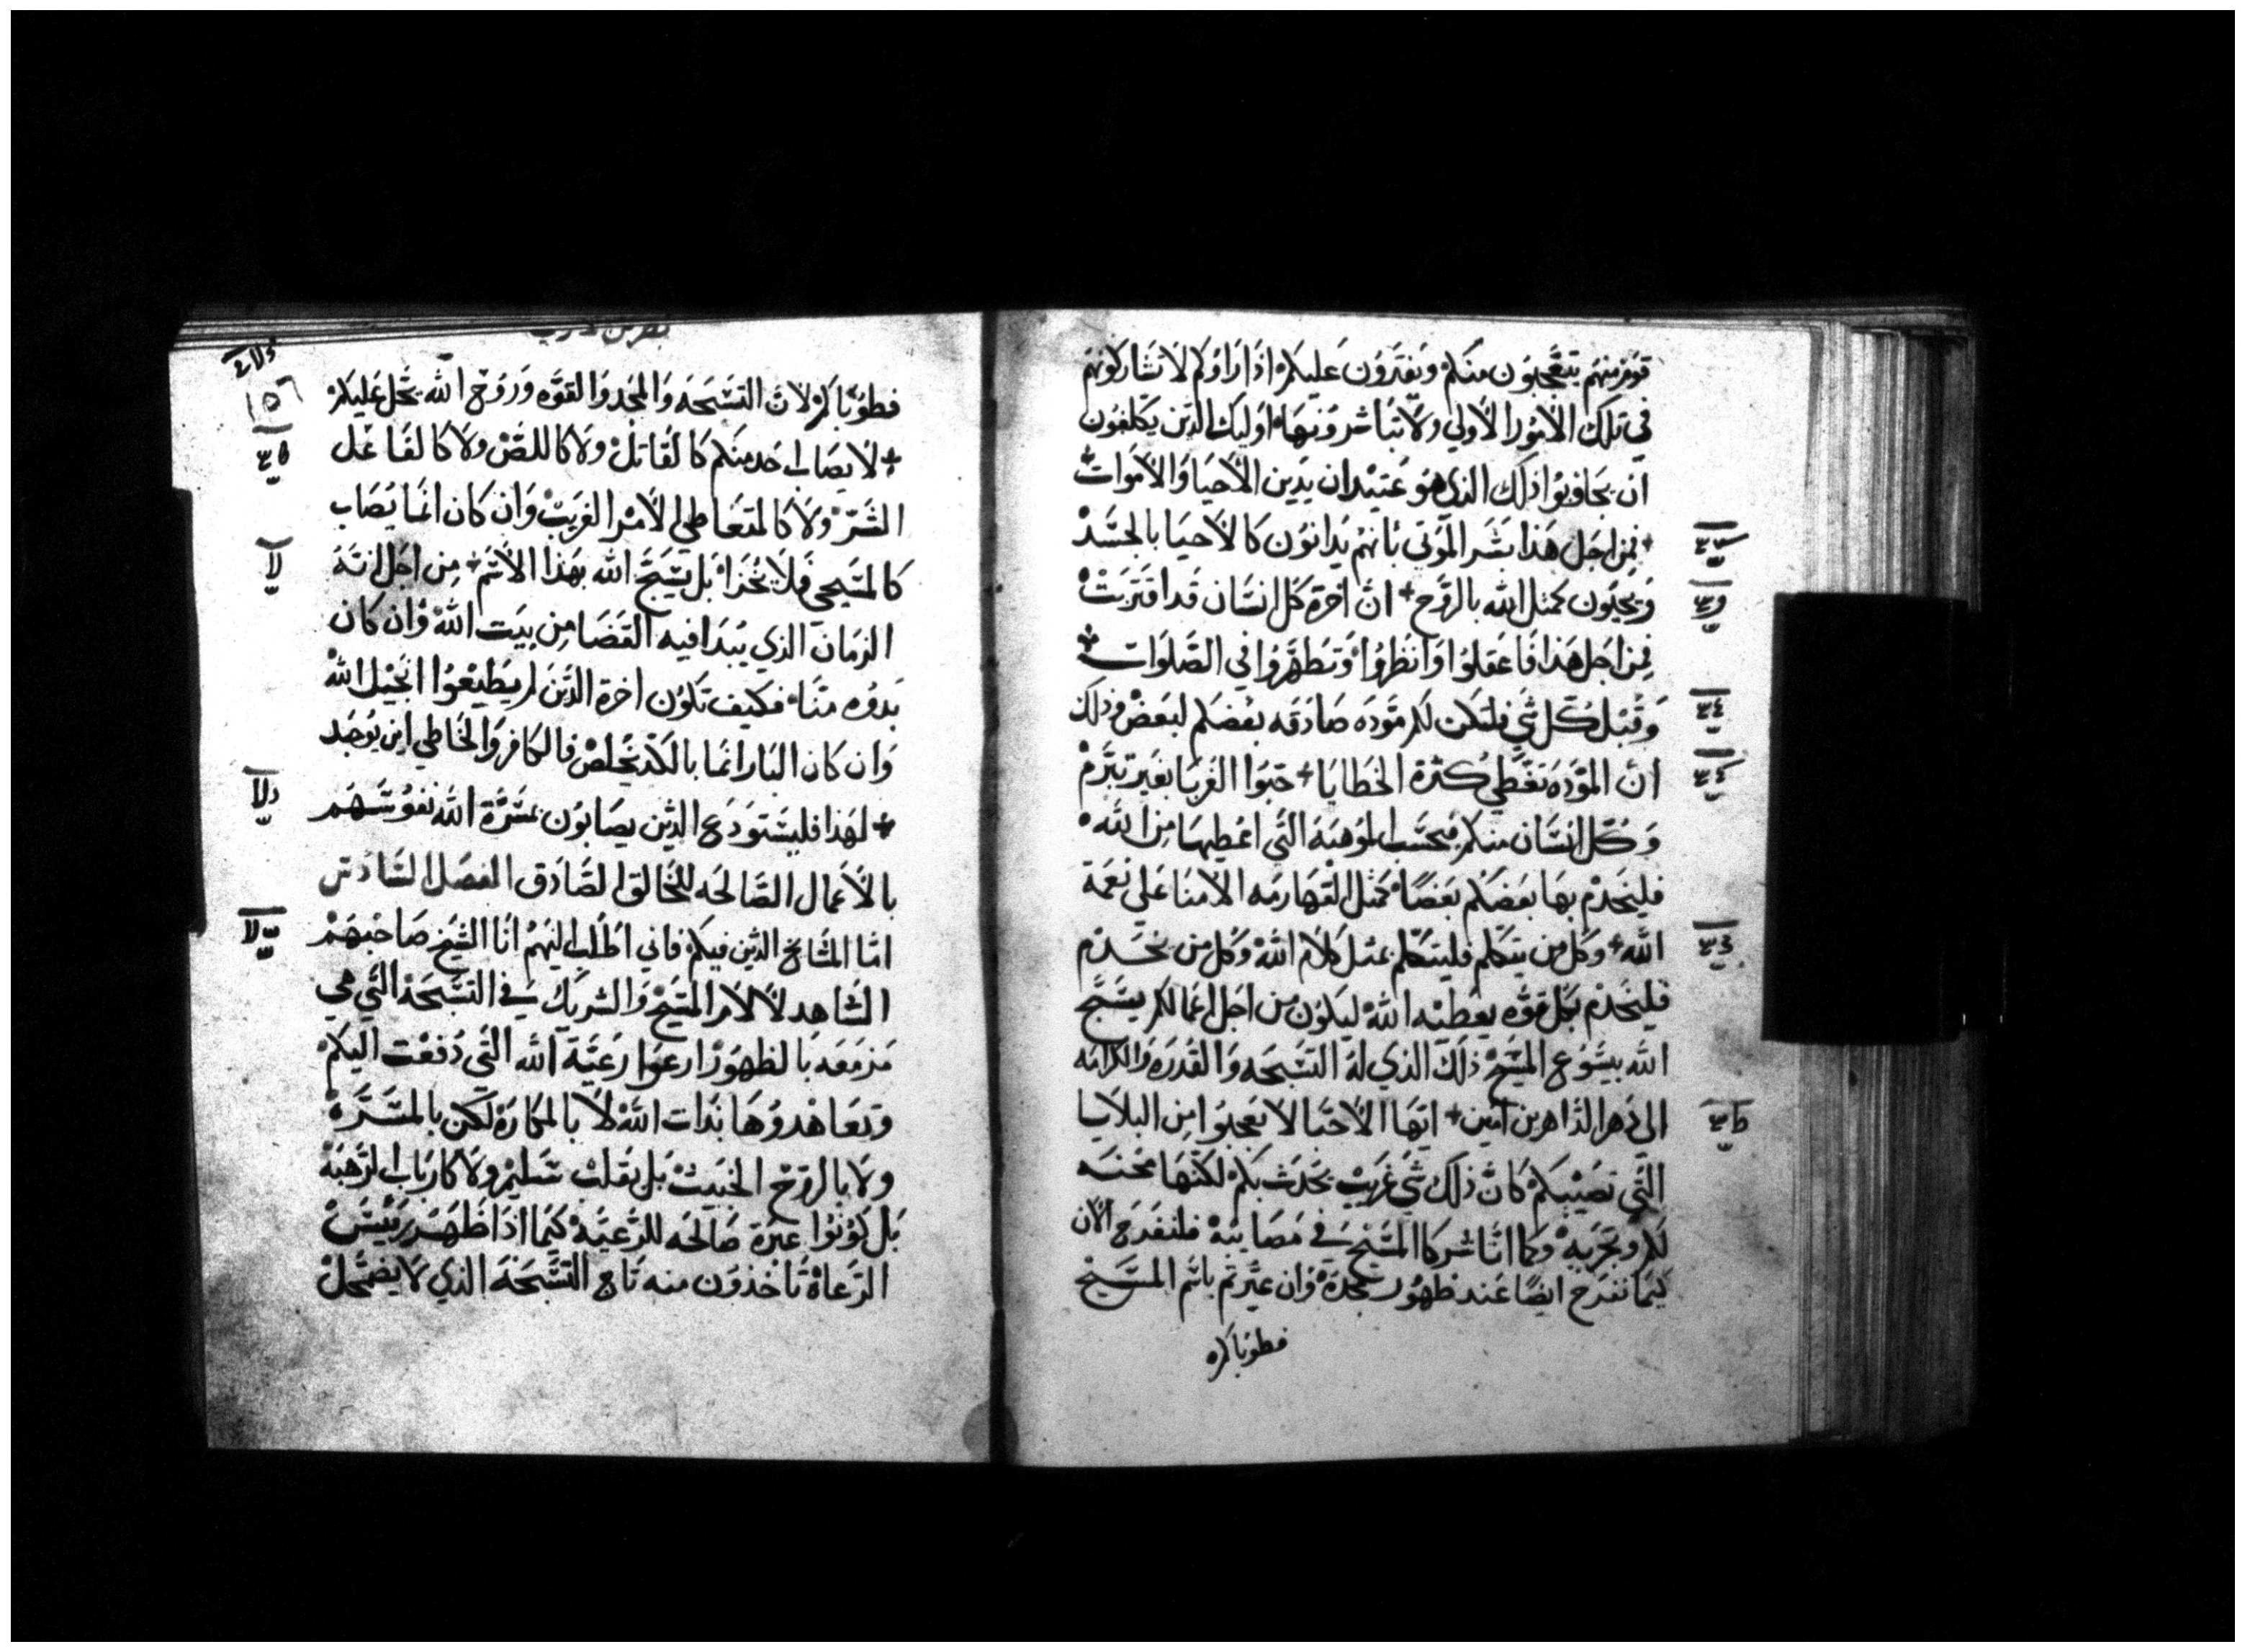 قوم منهم يتعجبون منكم ويفترون عليكم اذا راوكم لا تشاركونهم
في تلك الامور الاولي ولا تباشرونها اوليك الذين يكلفون
ان يجاوبوا ذلك الذي هو عتيد ان يدين الاحيا والاموات
فمن اجل هذا بشر الموتي بانهم يدانون كالاحيا بالجسد
ويحيون كمثل الله بالروح ان اخرة كل انسان قد اقتربت
فمن اجل هذا فاعقلوا وانظروا وتطهروا في الصلوات
وقبل كل شي فلتكن لكم مودة صادقه بعضكم لبعض وذلك
ان المودة تغطي كثرة الخطايا حبوا الغربا بغير تبرم
وكل انسان منكم فبحسب الموهبة التي اعطيها من الله
فليخدم بها بعضكم بعضا كمثل القهارمه الامنا علي نعمة
الله وكل من يتكلم فليتكلم بمثل كلام الله وكل من يخدم
فليخدم بكل قوه يعطيه الله ليكون من اجل اعمالكم يسبح
الله بيسوع المسيح ذلك الذي له التسبحه والقدره والكرامه
الي دهر الداهرين امين ايها الاحبا لا تعجبوا من البلايا
التي تصيبكم كان ذلك شي غريب يحدث بكم لكنها محنه
لكم وتجربه وكما انا شركا المسيح في مصايبه فلنفرح الان
كيما نفرح ايضا عند ظهور مجده وان عيرتم باسم المسيح
فطوباكم
١٥٦
فطوباكم لان التسبحه والمجد والقوه وروح الله تحل عليكم
لا يصاب احد منكم كالقاتل ولا كاللص ولا كالفاعل
الشر ولا كالمتعاطي الامر الغريب وان كان انما يصاب
كالمسيحي فلا يخزا بل يسبح الله بهذا الاسم من اجل انه
الزمان الذي يبدا فيه القضا من بيت الله وان كان
بدوه منا فكيف تكون اخرة الذين لم يطيعوا انجيل الله
وان كان البار انما بالكد يخلص فالكافر والخاطي اين يوجد
لهذا فليستودع الذين يصابون بمسرة الله نفوسهم
بالاعمال الصالحه للخالق الصادق الفصل السادس
اما المشايخ الذين فيكم فاني اطلب اليهم انا الشيخ صاحبهم
الشاهد لالام المسيح والشريك في التسبحة التي هي
مزمعه بالظهور ارعوا رعية الله التي دفعت اليكم
وتعاهدوها بذات الله لا بالمكاره لكن بالمسره
ولا بالروح الخبيث بل بقلب سليم ولا كارباب الرهبة
بل كونوا عبرة صالحه للرعية كيما اذا ظهر رييس
الرعاة تاخذون منه تاج التسبحة الذي لا يضمحل